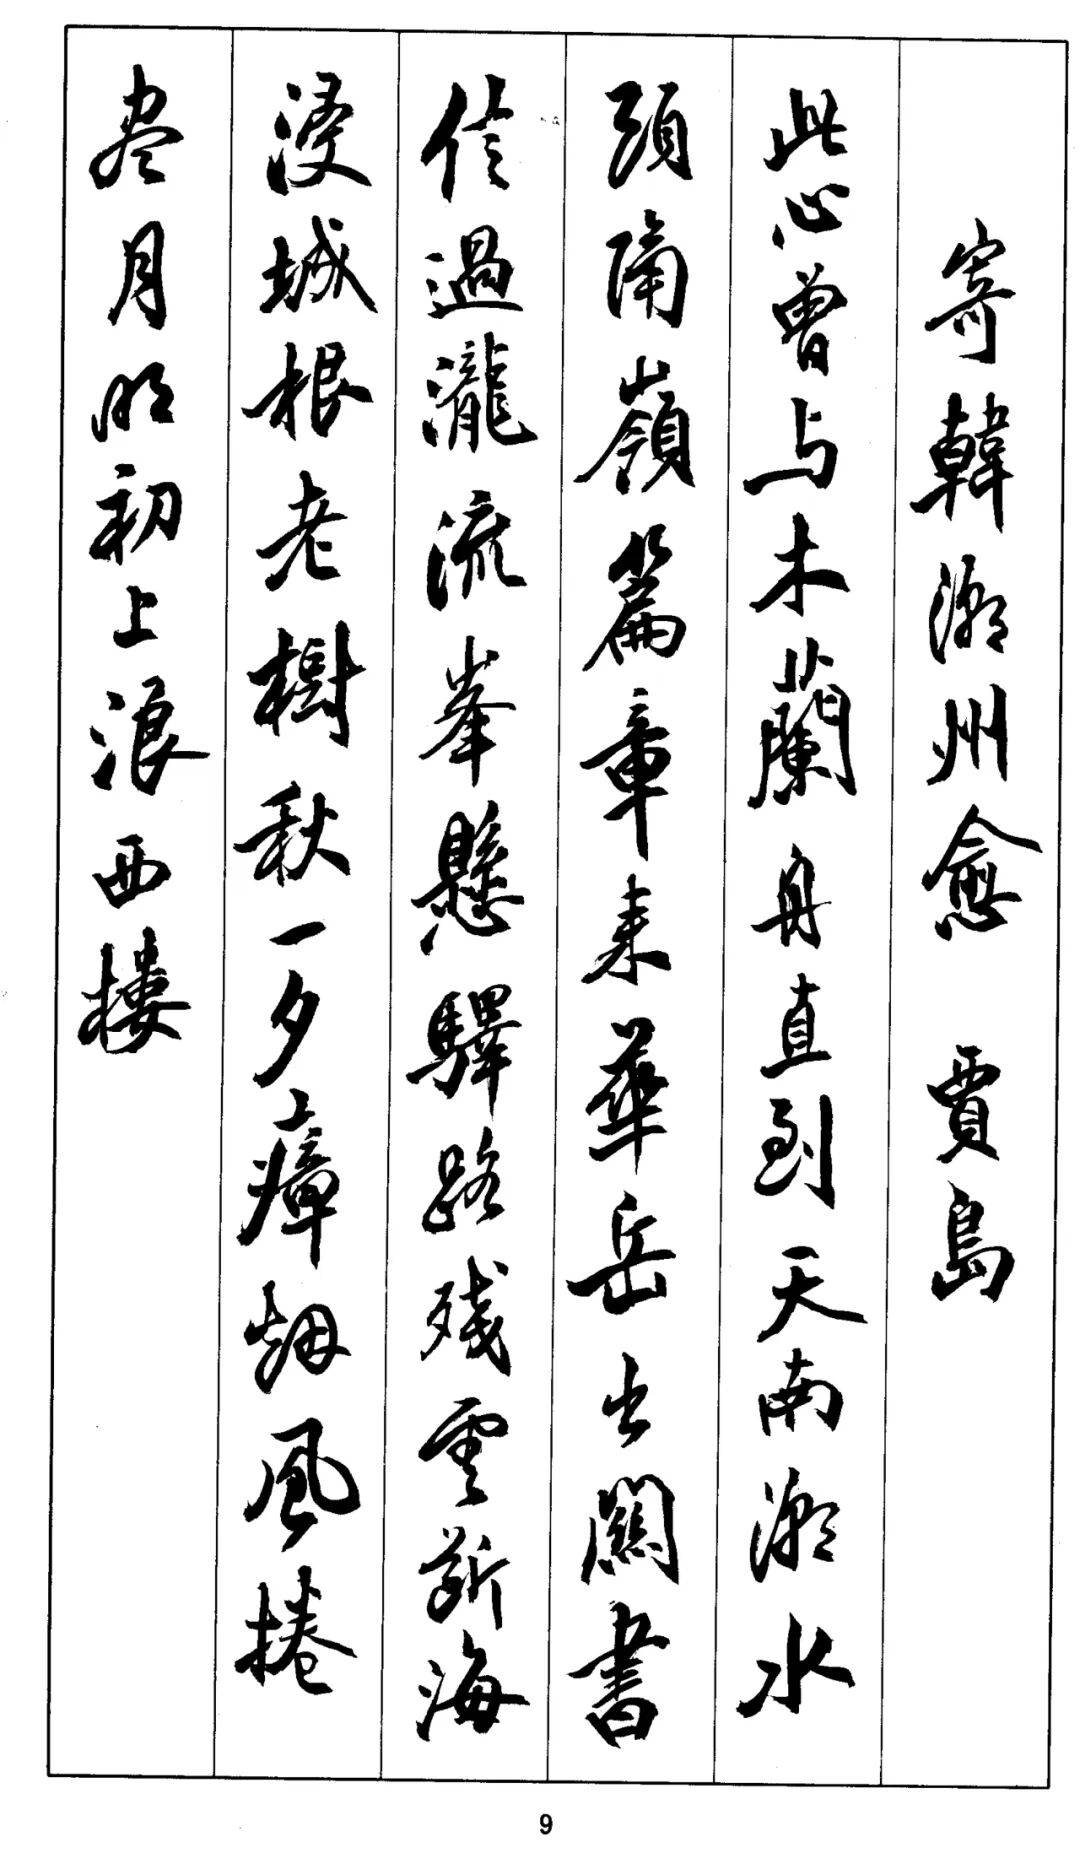 寄韓潮州愈　賈島
此心曾与木蘭舟直到天南潮水
頭隔嶺篇章来華岳出關書
信過瀧流峯懸驛路残雲断海
浸城根老樹秋一夕瘴烟風捲
尽月明初上浪西樓
9